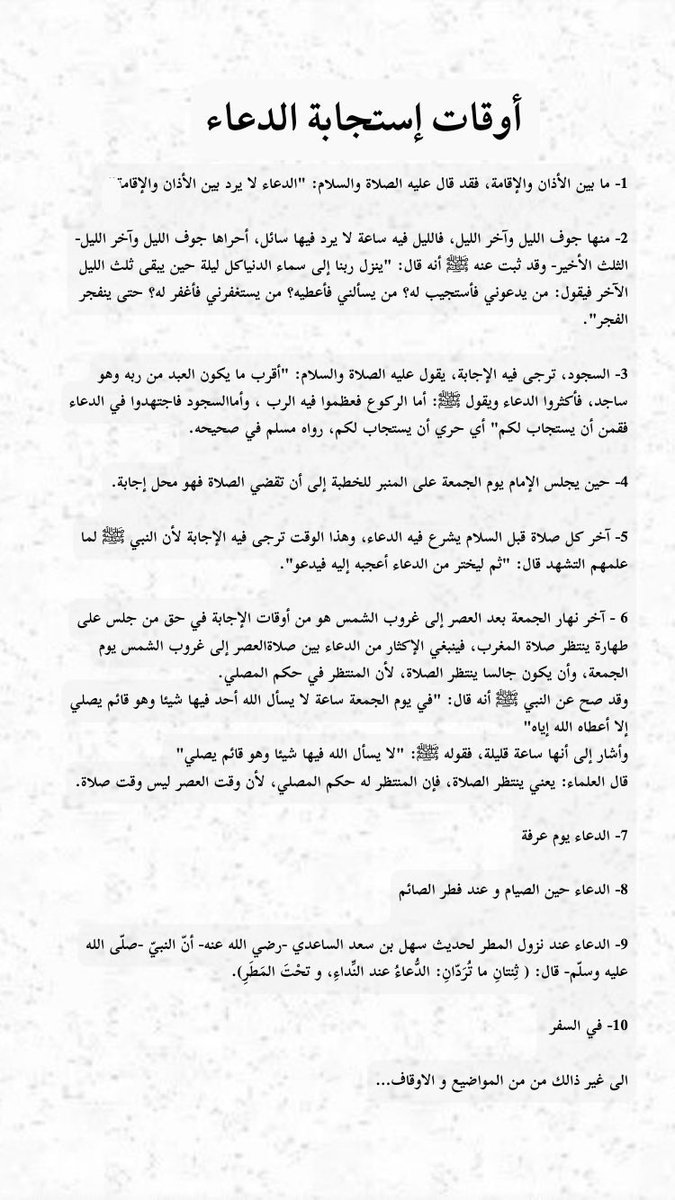 أوقات إستجابة الدعاء
1- ما بين الأذان والإقامة، فقد قال عليه الصلاة والسلام: "الدعاء لا يرد بين الأذان والإقامة"
2- منها جوف الليل وآخر الليل، فالليل فيه ساعة لا يرد فيها سائل، أحراها جوف الليل وآخر الليل-
الثلث الأخير- وقد ثبت عنه ﷺ أنه قال: "ينزل ربنا إلى سماء الدنياكل ليلة حين يبقى ثلث الليل
الآخر فيقول: من يدعوني فأستجيب له؟ من يسألني فأعطيه؟ من يستغفرني فأغفر له؟ حتى ينفجر
الفجر".
3- السجود، ترجى فيه الإجابة، يقول عليه الصلاة والسلام: "أقرب ما يكون العبد من ربه وهو
ساجد، فأكثروا الدعاء ويقول ﷺ: أما الركوع فعظموا فيه الرب ، وأماالسجود فاجتهدوا في الدعاء
فقمن أن يستجاب لكم" أي حري أن يستجاب لكم، رواه مسلم في صحيحه.
4- حين يجلس الإمام يوم الجمعة على المنبر للخطبة إلى أن تقضي الصلاة فهو محل إجابة.
5- آخر كل صلاة قبل السلام يشرع فيه الدعاء، وهذا الوقت ترجى فيه الإجابة لأن النبي ﷺ لما
علمهم التشهد قال: "ثم ليختر من الدعاء أعجبه إليه فيدعو".
6 - آخر نهار الجمعة بعد العصر إلى غروب الشمس هو من أوقات الإجابة في حق من جلس على
طهارة ينتظر صلاة المغرب، فينبغي الإكثار من الدعاء بين صلاةالعصر إلى غروب الشمس يوم
الجمعة، وأن يكون جالسا ينتظر الصلاة، لأن المنتظر في حكم المصلي.
وقد صح عن النبي ﷺ أنه قال: "في يوم الجمعة ساعة لا يسأل الله أحد فيها شيئا وهو قائم يصلي
إلا أعطاه الله إياه"
وأشار إلى أنها ساعة قليلة، فقوله ﷺ: "لا يسأل الله فيها شيئا وهو قائم يصلي"
قال العلماء: يعني ينتظر الصلاة، فإن المنتظر له حكم المصلي، لأن وقت العصر ليس وقت صلاة.
7- الدعاء يوم عرفة
8- الدعاء حين الصيام و عند فطر الصائم
9- الدعاء عند نزول المطر لحديث سهل بن سعد الساعدي -رضي الله عنه- أنّ النبيّ -صلّى الله
عليه وسلّم- قال: ( ثِنتانِ ما تُرَدّانِ: الدُّعاءُ عند النِّداءِ، و تحْتَ المَطَرِ).
10- في السفر
الى غير ذالك من من المواضيع و الاوقاف...